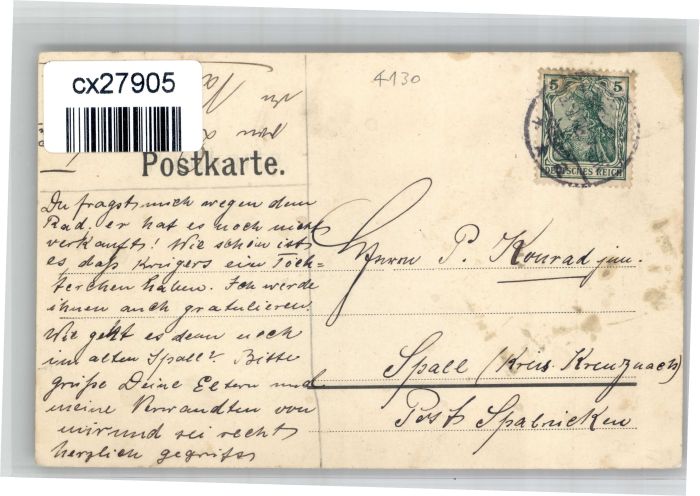 cx27905
4130
5 5
DEUTSCHES REICH
Postkarte.
Du fragst mich wegen dem
Rad. er hat es noch nicht
verkauft! Wie schön ist
es daß Krügers ein Töch-
terchen haben. Ich werde
ihnen auch gratulieren.
Wie geht es denn noch
im alten Spall? Bitte
grüße Deine Eltern und
meine Verwandten von
mir und sei recht
herzlich gegrüßt
Herrn P. Konrad jun.
Spall (Kreis Kreuznach)
Post Spabrücken